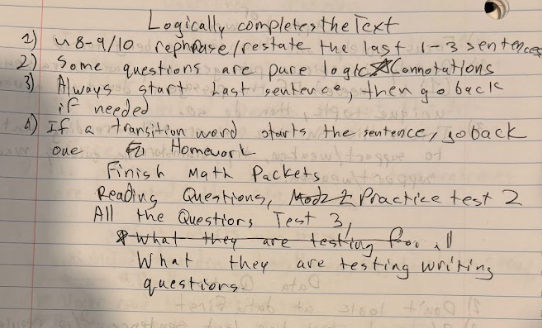 Logically completes the Text
1) u 8-9/10 rephrase/restate the last 1-3 sentences
2) Some questions are pure logic Connotations
3) Always start last sentence, then go back
if needed
4) If a transition word starts the sentence, go back
one Homework
Finish Math Packets
Reading Questions, Practice test 2
All the Questions Test 3,
What they are testing for all
What they are testing writing
questions